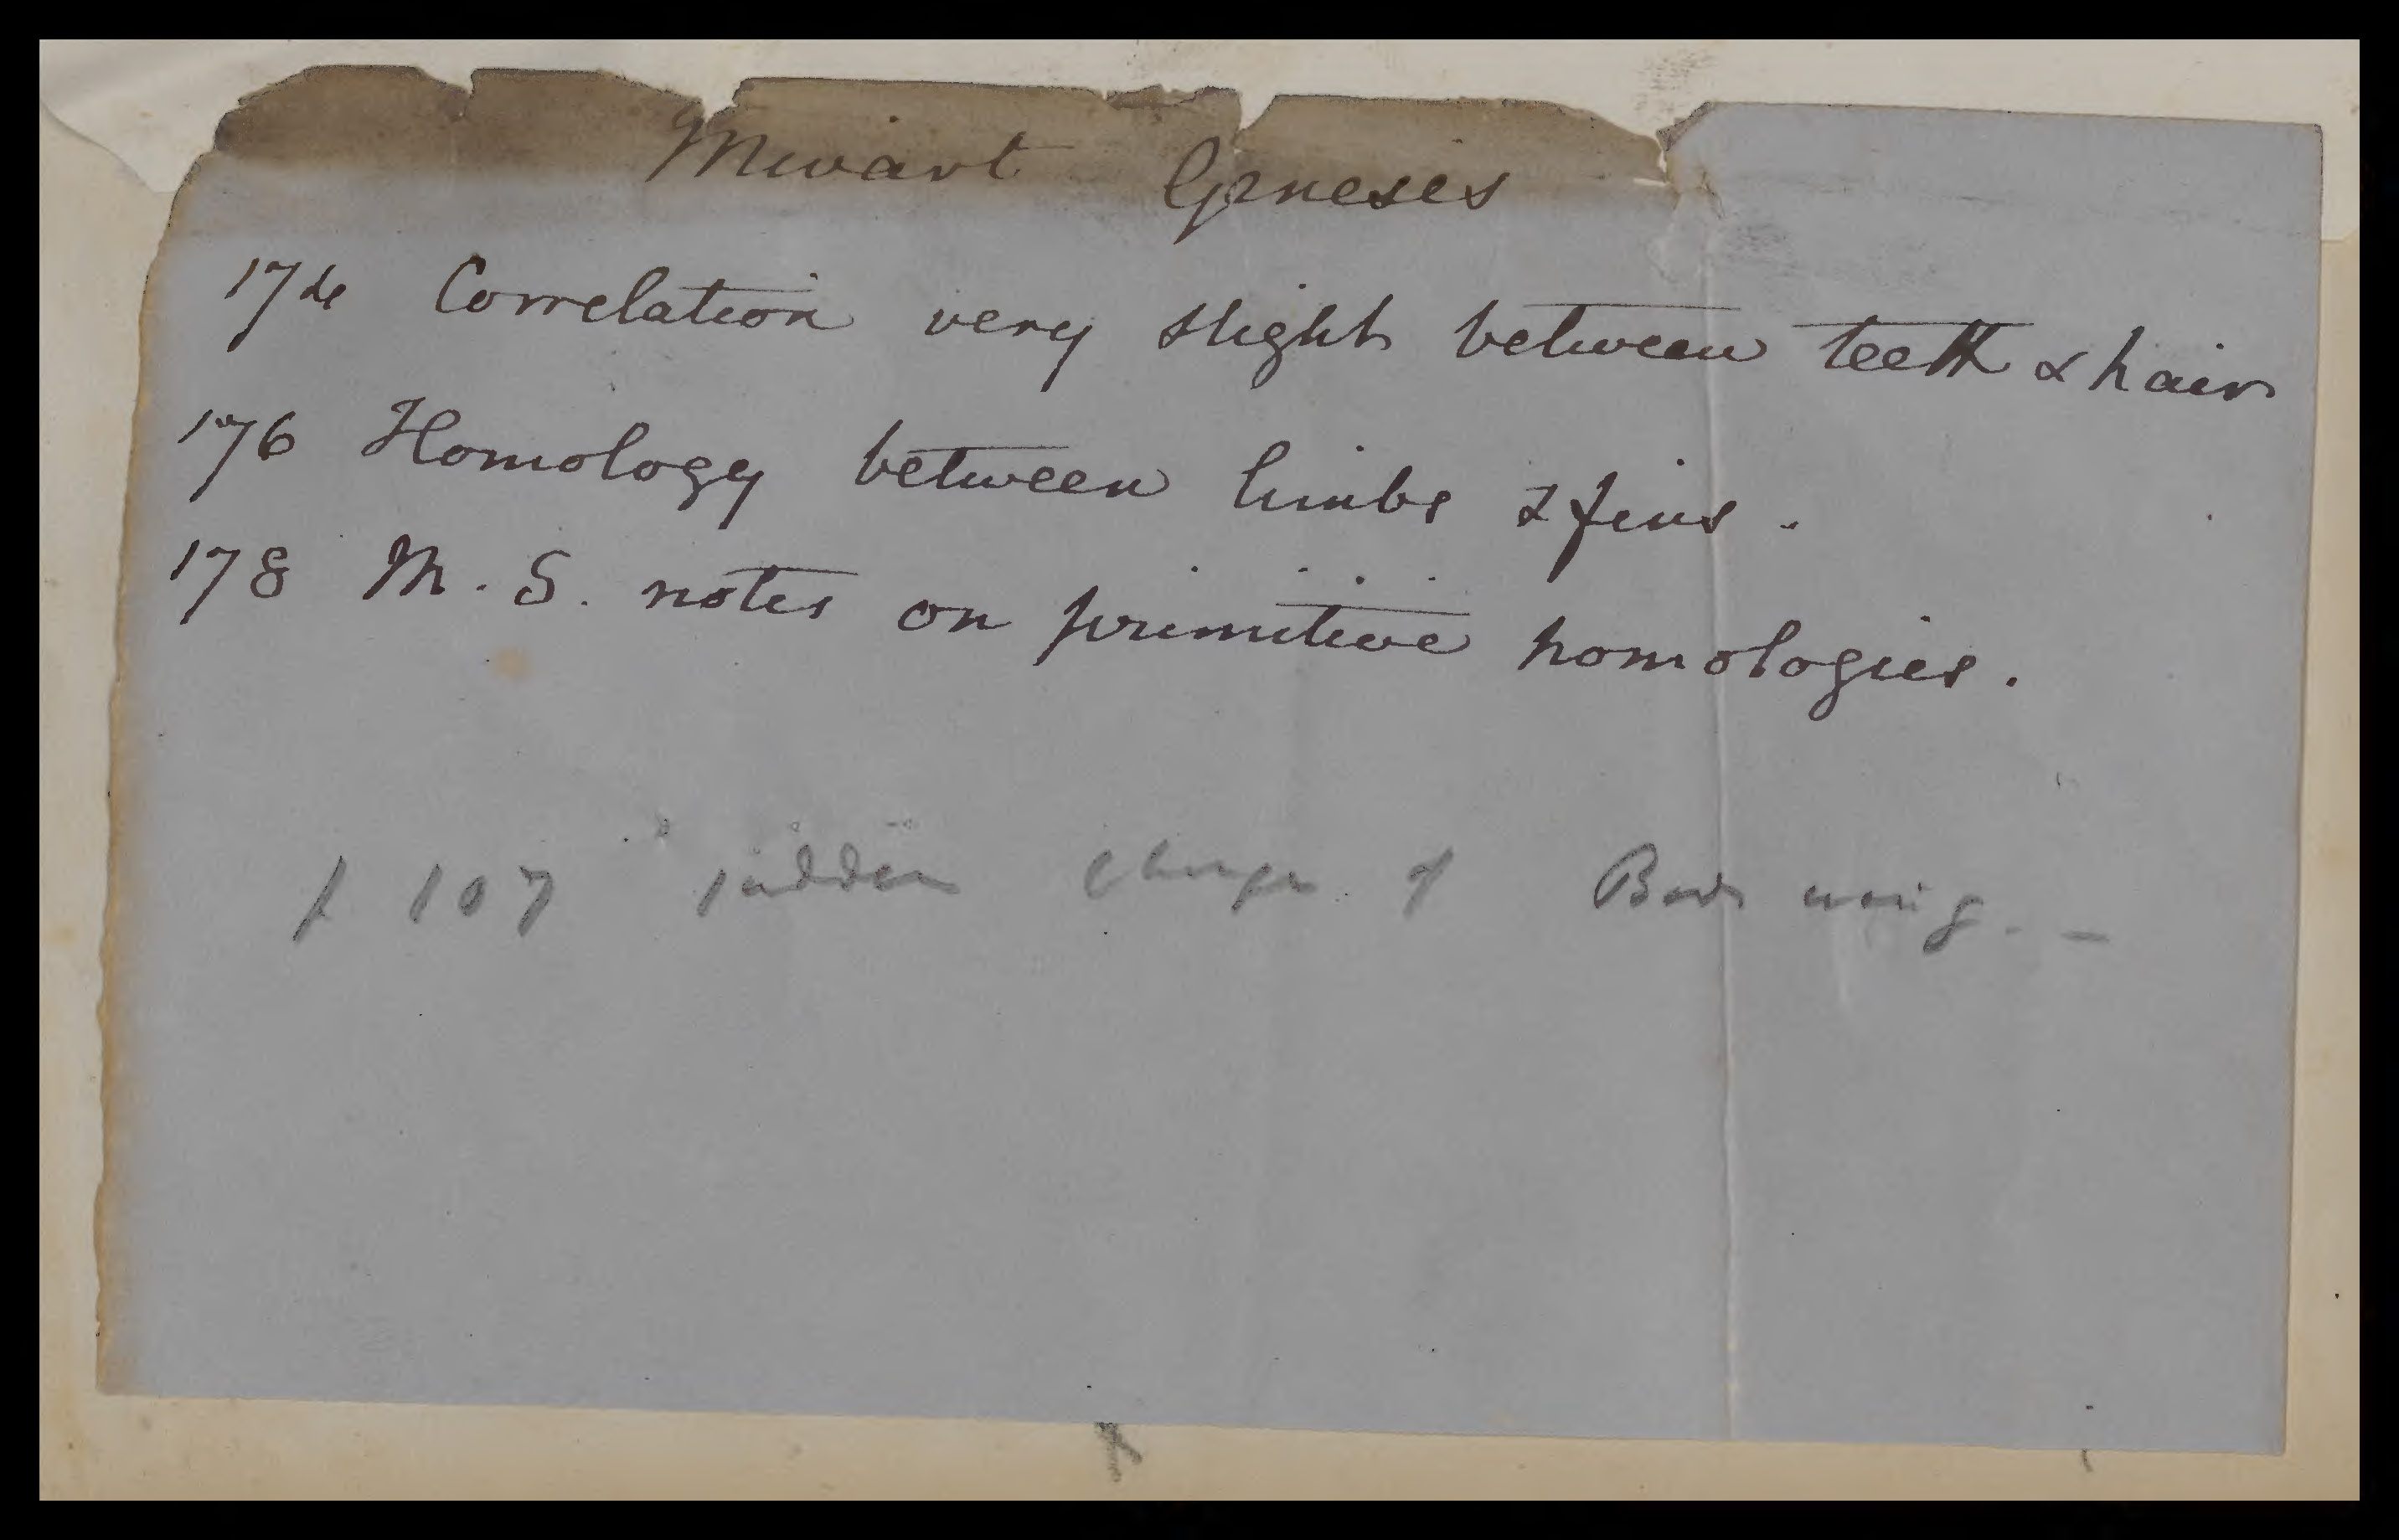 Mivart Genesis
174 Correlation very slight between teeth & hair
176 Homology between limbs & fins.
178 M.S. notes on primitive homologies.
p 107 sudden change of Bird wing. —